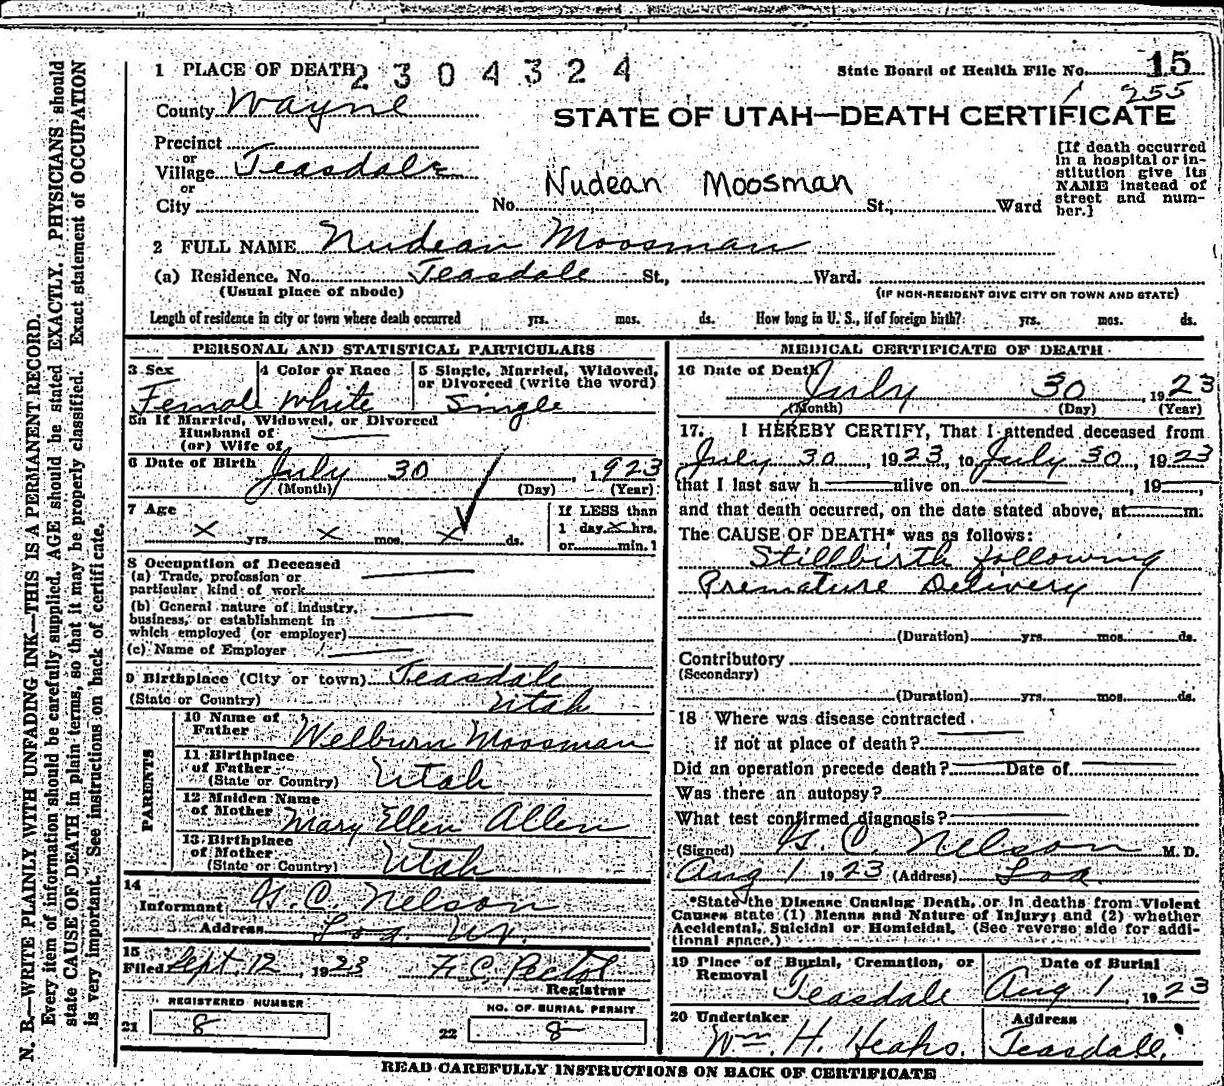 N. B.—WRITE PLAINLY WITH UNFADING INK—THIS IS A PERMANENT RECORD.
Every item of information should be carefully supplied. AGE should be stated EXACTLY. PHYSICIANS should
state CAUSE OF DEATH in plain terms, so that it may be properly classified. Exact statement of OCCUPATION
is very important. See instructions on back of certificate.
1 PLACE OF DEATH 2304324 State Board of Health File No. 15
255
County Wayne
STATE OF UTAH—DEATH CERTIFICATE
Precinct
or
Village Teasdale
or
City No. Nudean Moosman St., Ward
[If death occurred
in a hospital or in-
stitution give its
NAME instead of
street and num-
ber.]
2 FULL NAME Nudean Moosman
(a) Residence. No. Teasdale St., Ward.
(Usual place of abode) (IF NON-RESIDENT GIVE CITY OR TOWN AND STATE)
Length of residence in city or town where death occurred yrs. mos. ds. How long in U. S., if of foreign birth? yrs. mos. ds.
PERSONAL AND STATISTICAL PARTICULARS
3 Sex 4 Color or Race 5 Single, Married, Widowed,
or Divorced (write the word)
Female White Single
5a If Married, Widowed, or Divorced
Husband of
(or) Wife of
6 Date of Birth July 30, 1923
(Month) (Day) (Year)
7 Age
x yrs. x mos. x ds.
If LESS than
1 day x hrs.
or min.?
8 Occupation of Deceased
(a) Trade, profession or
particular kind of work
(b) General nature of industry,
business, or establishment in
which employed (or employer)
(c) Name of Employer
9 Birthplace (City or town) Teasdale
(State or Country) Utah
PARENTS
10 Name of
Father Welburn Moosman
11 Birthplace
of Father
(State or Country) Utah
12 Maiden Name
of Mother Mary Ellen Allen
13 Birthplace
of Mother
(State or Country) Utah
14
Informant G. C. Nelson
Address Loa. Ut.
15
Filed Sept. 12, 1923 F. C. Pectol
Registrar
REGISTERED NUMBER
21 8
NO. OF BURIAL PERMIT
22 8
MEDICAL CERTIFICATE OF DEATH
16 Date of Death July 30 1923
(Month) (Day) (Year)
17. I HEREBY CERTIFY, That I attended deceased from
July 30, 1923, to July 30, 1923
that I last saw h alive on , 19 ,
and that death occurred, on the date stated above, at m.
The CAUSE OF DEATH* was as follows:
Stillbirth following
Premature Delivery
(Duration) yrs. mos. ds.
Contributory
(Secondary)
(Duration) yrs. mos. ds.
18 Where was disease contracted
if not at place of death?
Did an operation precede death? Date of
Was there an autopsy?
What test confirmed diagnosis?
(Signed) G. C. Nelson M. D.
Aug 1 1923 (Address) Loa.
*State the Disease Causing Death, or in deaths from Violent
Causes state (1) Means and Nature of Injury; and (2) whether
Accidental, Suicidal or Homicidal. (See reverse side for addi-
tional space.)
19 Place of Burial, Cremation, or
Removal
Teasdale
Date of Burial
Aug 1, 1923
20 Undertaker
Wm. H.
Address
Teasdale.
READ CAREFULLY INSTRUCTIONS ON BACK OF CERTIFICATE